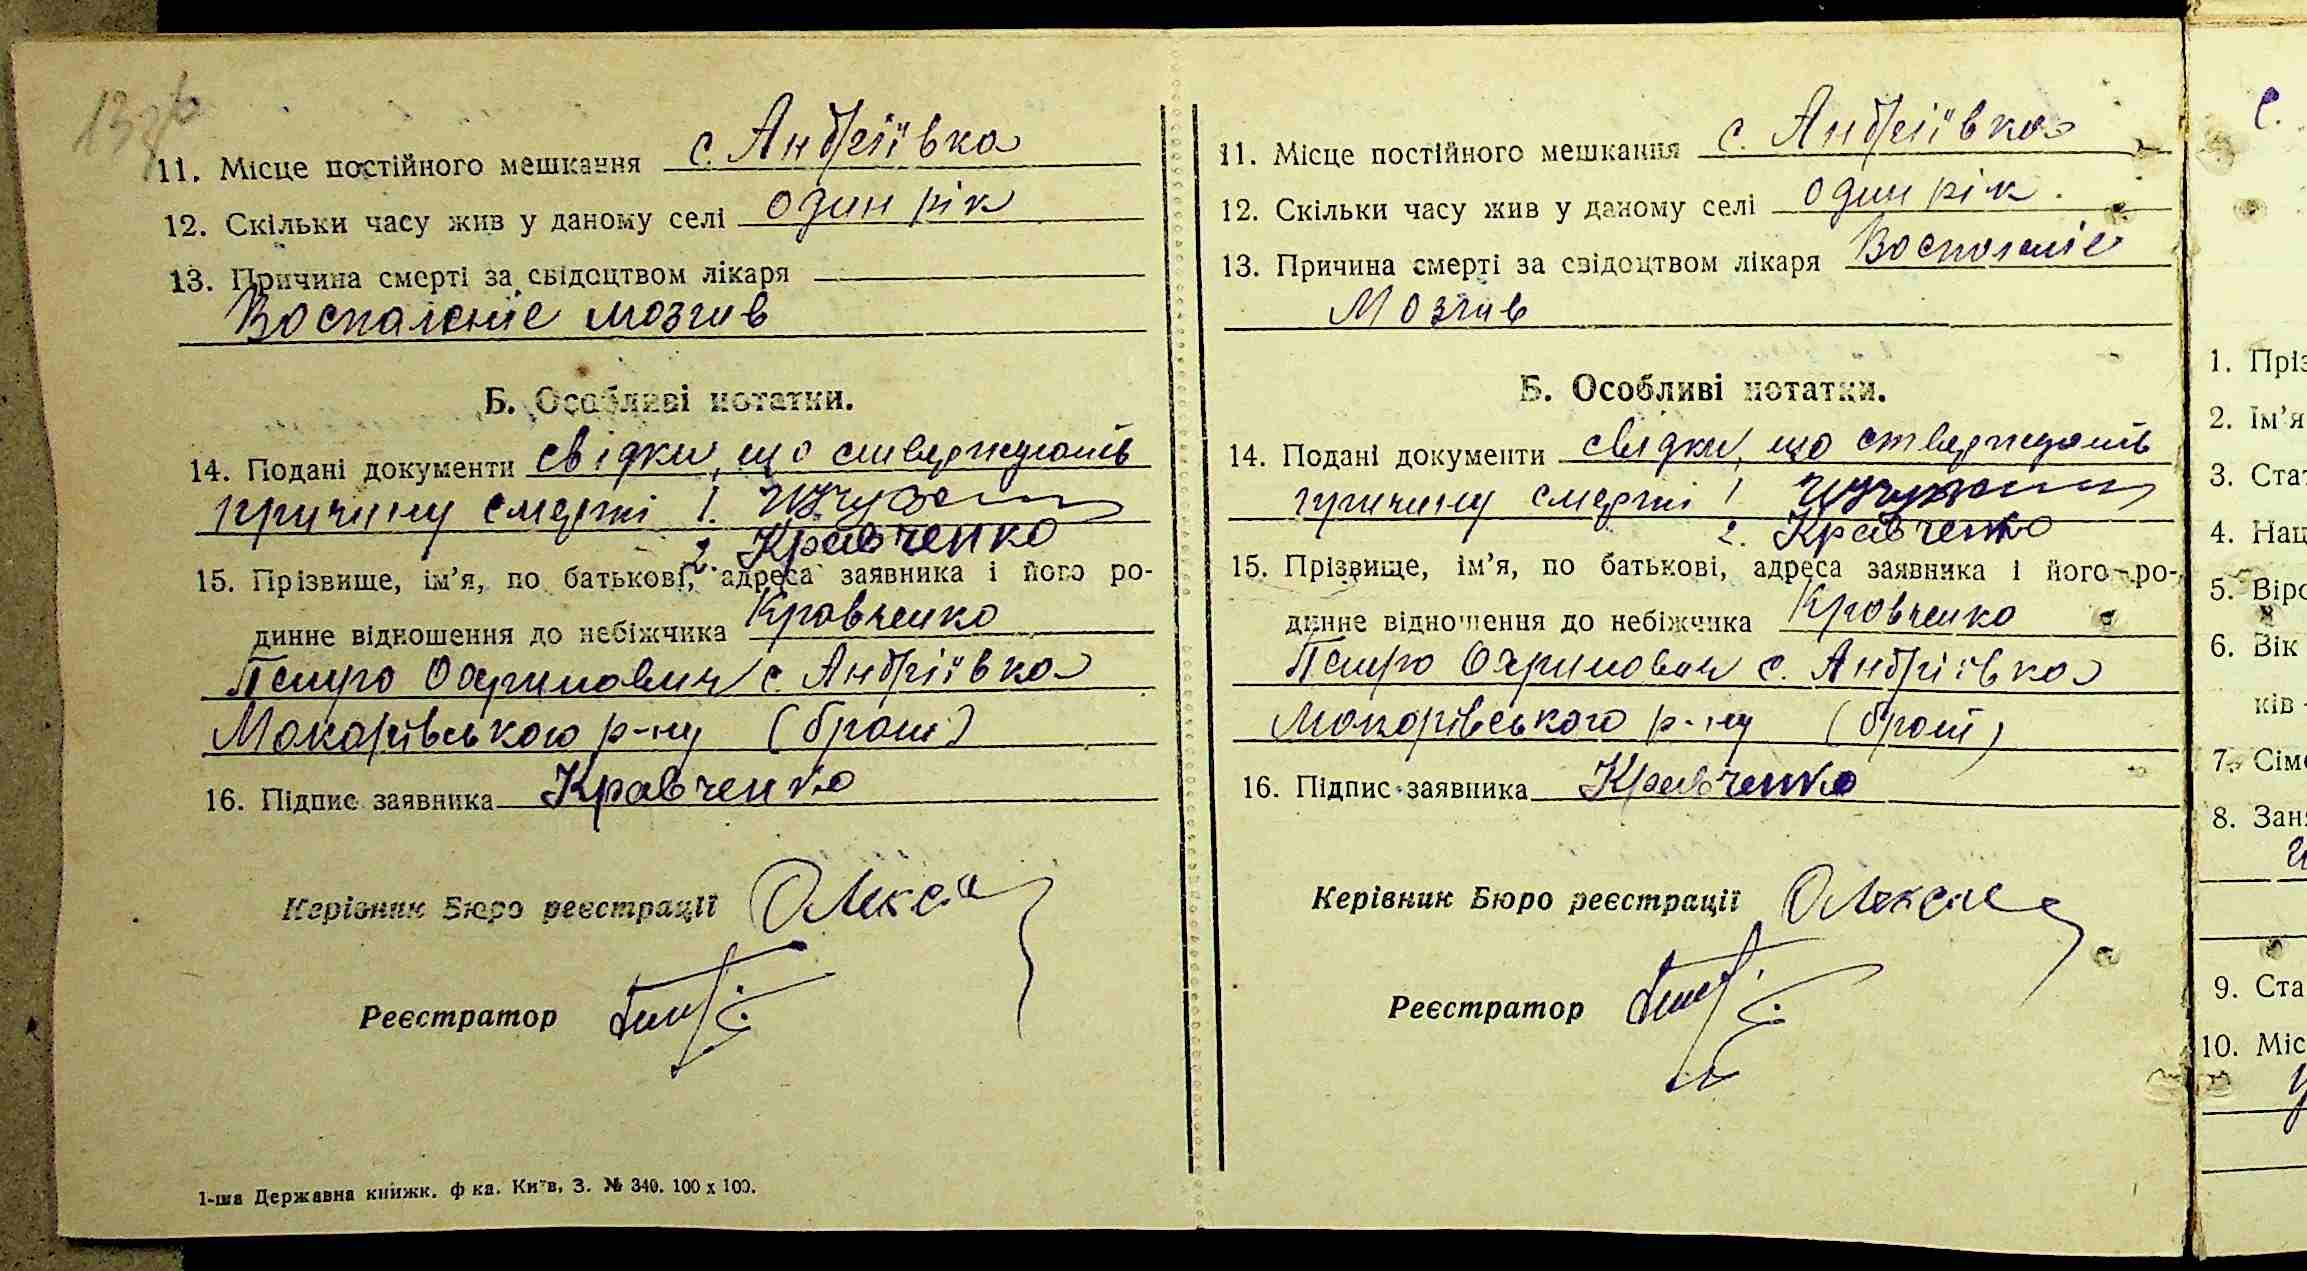 13зв
11. Місце постійного мешкання с. Андріївка
12. Скільки часу жив у даному селі один рік
13. Причина смерті за свідоцтвом лікаря
Воспаленіе мозгив
Б. Особливі нотатки.
14. Подані документи свідки, що стверджують
причину смерті 1.
2. Кравченко
15. Прізвище, ім'я, по батькові, адреса заявника і його ро-
динне відношення до небіжчика Кравченко
Петро Охримович с. Андріївка
Макарівського р-ну (брат)
16. Підпис заявника Кравченко
Керівник Бюро реєстрації
Реєстратор
1-ша Державна книжк. ф ка. Київ, З. № 340. 100 х 100.
11. Місце постійного мешкання с. Андріївка
12. Скільки часу жив у даному селі один рік.
13. Причина смерті за свідоцтвом лікаря Воспаленіе
Мозгив
Б. Особливі нотатки.
14. Подані документи свідки, що стверджують
причину смерті 1
2. Кравченко
15. Прізвище, ім'я, по батькові, адреса заявника і його ро-
динне відношення до небіжчика Кравченко
Петро Охримович с. Андріївка
Макарівського р-ну (брат)
16. Підпис заявника Кравченко
Керівник Бюро реєстрації
Реєстратор
с.
1. Пріз
2. Ім'я
3. Стат
4. Нац
5. Віро
6. Вік
ків
7. Сіме
8. Заня
9. Ста
10. Міс